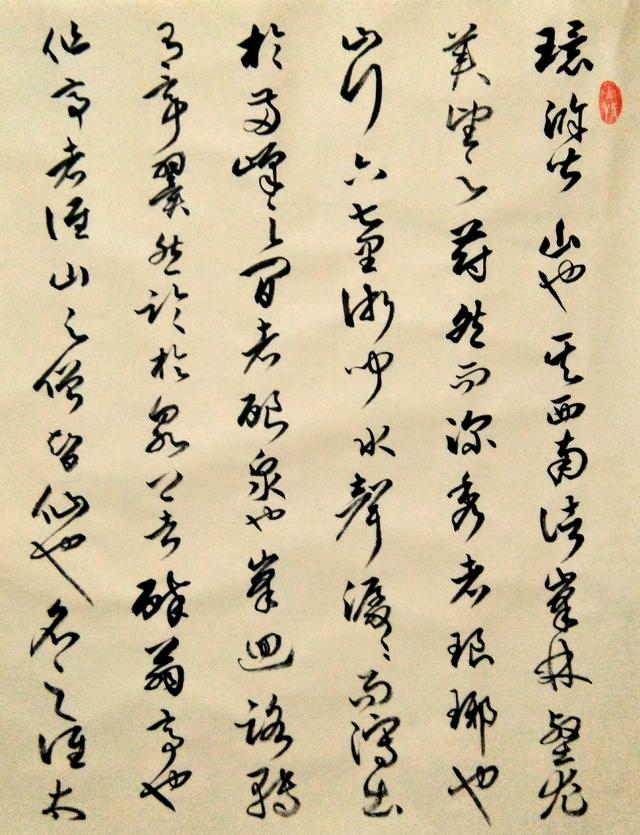 環滁皆山也其西南諸峯林壑尤
美望之蔚然而深秀者琅琊也
山行六七里漸聞水聲潺潺而瀉出
於兩峰之間者釀泉也峯迴路轉
有亭翼然臨於泉上者醉翁亭也
作亭者誰山之僧智仙也名之誰太